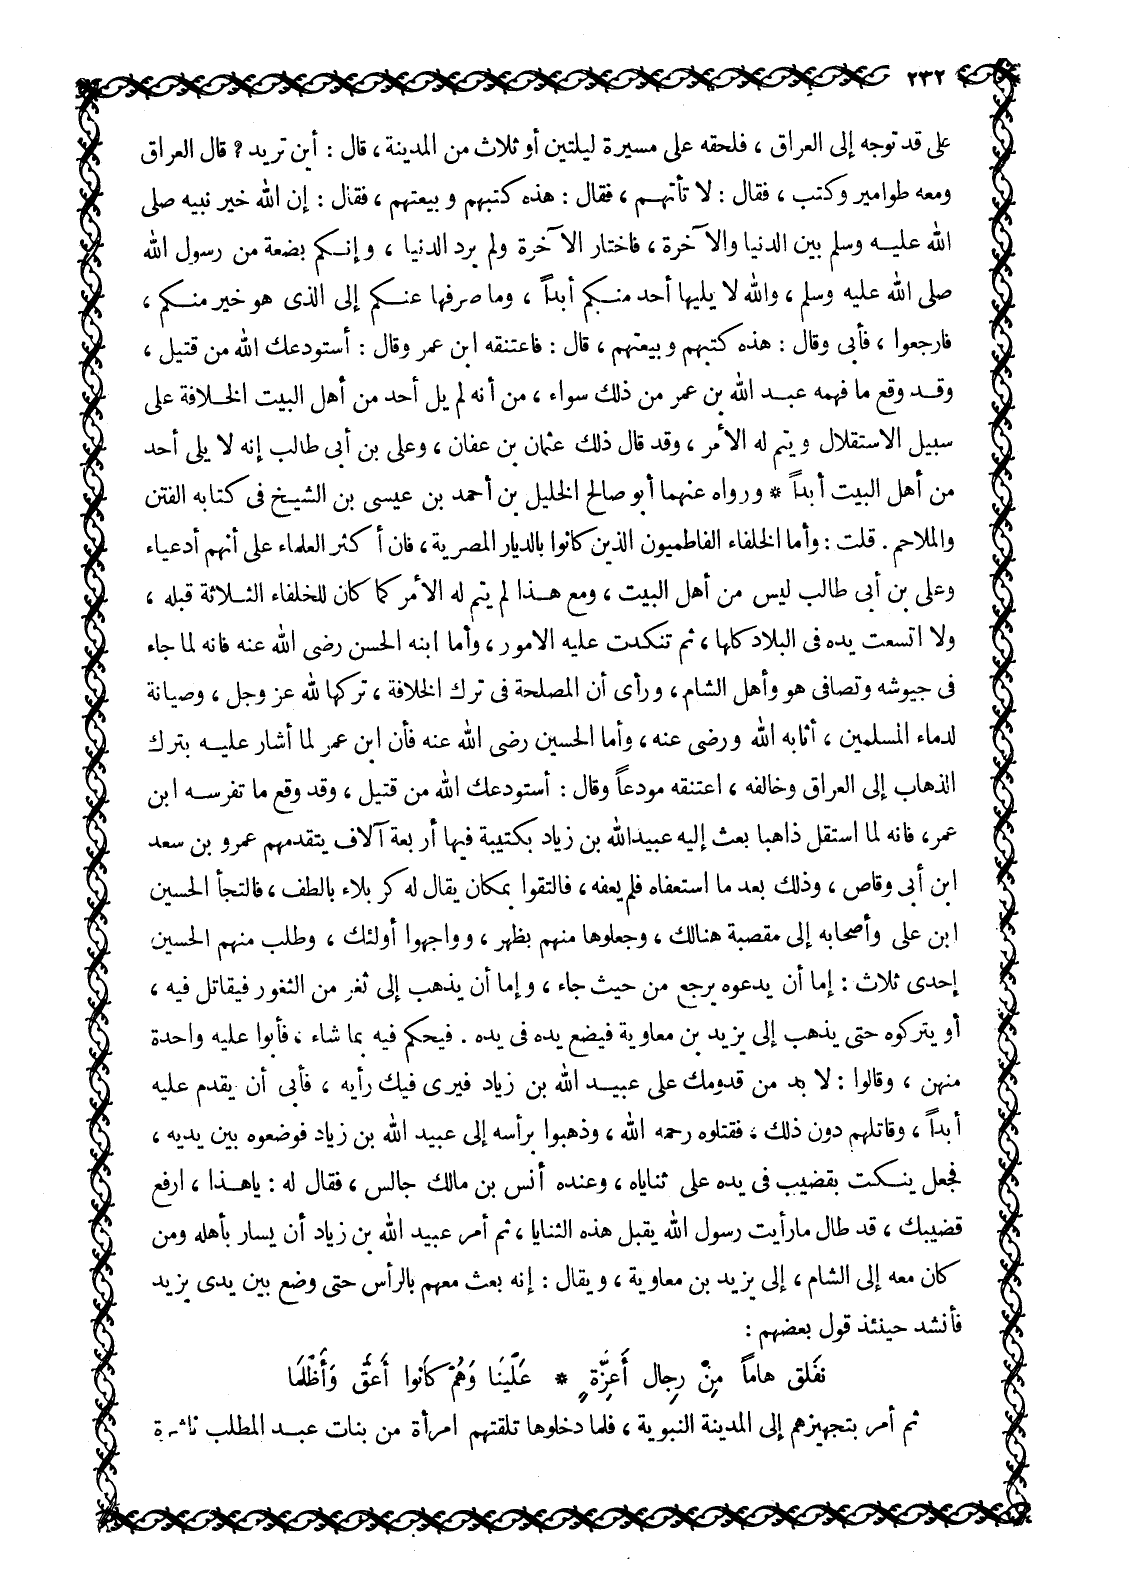 ٢٣٢
على قد توجه إلى العراق ، فلحقه على مسيرة ليلتين أو ثلاث من المدينة ، قال : أين تريد ? قال العراق
ومعه طوامير وكتب ، فقال : لا تأتهـم ، فقال : هذه كتبهم وبيعتهم ، فقال : إن الله خير نبيه صلى
الله عليه وسلم بين الدنيا والآخرة ، فاختار الآخرة ولم يرد الدنيا ، وإنـكم بضعة من رسول الله
صلى الله عليه وسلم ، والله لا يليها أحد منـكم أبداً ، وما صرفها عنـكم إلى الذى هو خير منـكم ،
فارجعوا ، فأبى وقال : هذه كتبهم وبيعتهم ، قال : فاعتنقه ابن عمر وقال : أستودعك الله من قتيل ،
وقـد وقع ما فهمه عبـد الله بن عمر من ذلك سواء ، من أنه لم يل أحد من أهل البيت الخـلافة على
سبيل الاستقلال ويتم له الأمر ، وقد قال ذلك عثمان بن عفان ، وعلى بن أبى طالب إنه لا يلى أحد
من أهل البيت أبداً * ورواه عنهما أبو صالح الخليل بن أحمد بن عيسى بن الشيخ فى كتابه الفتن
والملاحم . قلت : وأما الخلفاء الفاطميون الذين كانوا بالديار المصرية ، فان أكثر العلماء على أنهم أدعياء
وعلى بن أبى طالب ليس من أهل البيت ، ومع هـذا لم يتم له الأمر كما كان للخلفاء الثـلاثة قبله ،
ولا اتسعت يده فى البلاد كلها ، ثم تنكدت عليه الامور ، وأما ابنه الحسن رضى الله عنه فانه لما جاء
فى جيوشه وتصافى هو وأهل الشام ، ورأى أن المصلحة فى ترك الخلافة ، تركها لله عز وجل ، وصيانة
لدماء المسلمين ، أثابه الله ورضى عنه ، وأما الحسين رضى الله عنه فأن ابن عمر لما أشار عليـه بترك
الذهاب إلى العراق وخالفه ، اعتنقه مودعاً وقال : أستودعك الله من قتيل ، وقد وقع ما تفرسـه ابن
عمر ، فانه لما استقل ذاهبا بعث إليه عبيدالله بن زياد بكتيبة فيها أربعة آلاف يتقدمهم عمرو بن سعد
ابن أبى وقاص ، وذلك بعد ما استعفاه فلم يعفه ، فالتقوا بمكان يقال له كربلاء بالطف ، فالتجأ الحسين
ابن على وأصحابه إلى مقصبة هنالك ، وجعلوها منهم بظهر ، وواجهوا أولئك ، وطلب منهم الحسين
إحدى ثلاث : إما أن يدعوه يرجع من حيث جاء ، وإما أن يذهب إلى ثغر من الثغور فيقاتل فيه ،
أو يتركوه حتى يذهب إلى يزيد بن معاوية فيضع يده فى يده . فيحكم فيه بما شاء ، فأبوا عليه واحدة
منهن ، وقالوا : لا بد من قدومك على عبيـد الله بن زياد فيرى فيك رأيه ، فأبى أن يقدم عليه
أبداً ، وقاتلهم دون ذلك ، فقتلوه رحمه الله ، وذهبوا برأسه إلى عبيد الله بن زياد فوضعوه بين يديه ،
فجعل ينـكت بقضيب فى يده على ثناياه ، وعنده أنس بن مالك جالس ، فقال له : ياهـذا ، ارفع
قضيبك ، قد طال مارأيت رسول الله يقبل هذه الثنايا ، ثم أمر عبيد الله بن زياد أن يسار بأهله ومن
كان معه إلى الشام ، إلى يزيد بن معاوية ، ويقال : إنه بعث معهم بالرأس حتى وضع بين يدى يزيد
فأنشد حينئذ قول بعضهم :
نفَلق هاماً مِنْ رِجال أَعِزَّةٍ * عَلَيْنَا وَهُمْ كَانوا أَعَقَّ وَأَظْلَمَا
ثم أمر بتجهيزهم إلى المدينة النبوية ، فلما دخلوها تلقتهم امرأة من بنات عبـد المطلب ناشرة